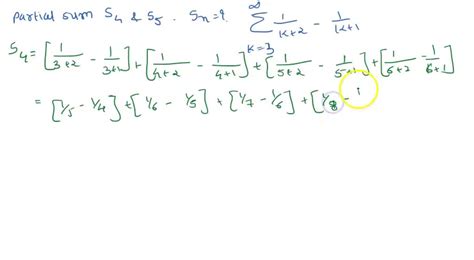 partial sum S4 & S5 . Sn=?. ∞ Σ k=3 1/(k+2) - 1/(k+1)
S4 = [1/(3+2) - 1/(3+1)] + [1/(4+2) - 1/(4+1)] + [1/(5+2) - 1/(5+1)] + [1/(6+2) - 1/(6+1)]
= [1/5 - 1/4] + [1/6 - 1/5] + [1/7 - 1/6] + [1/8 - 1